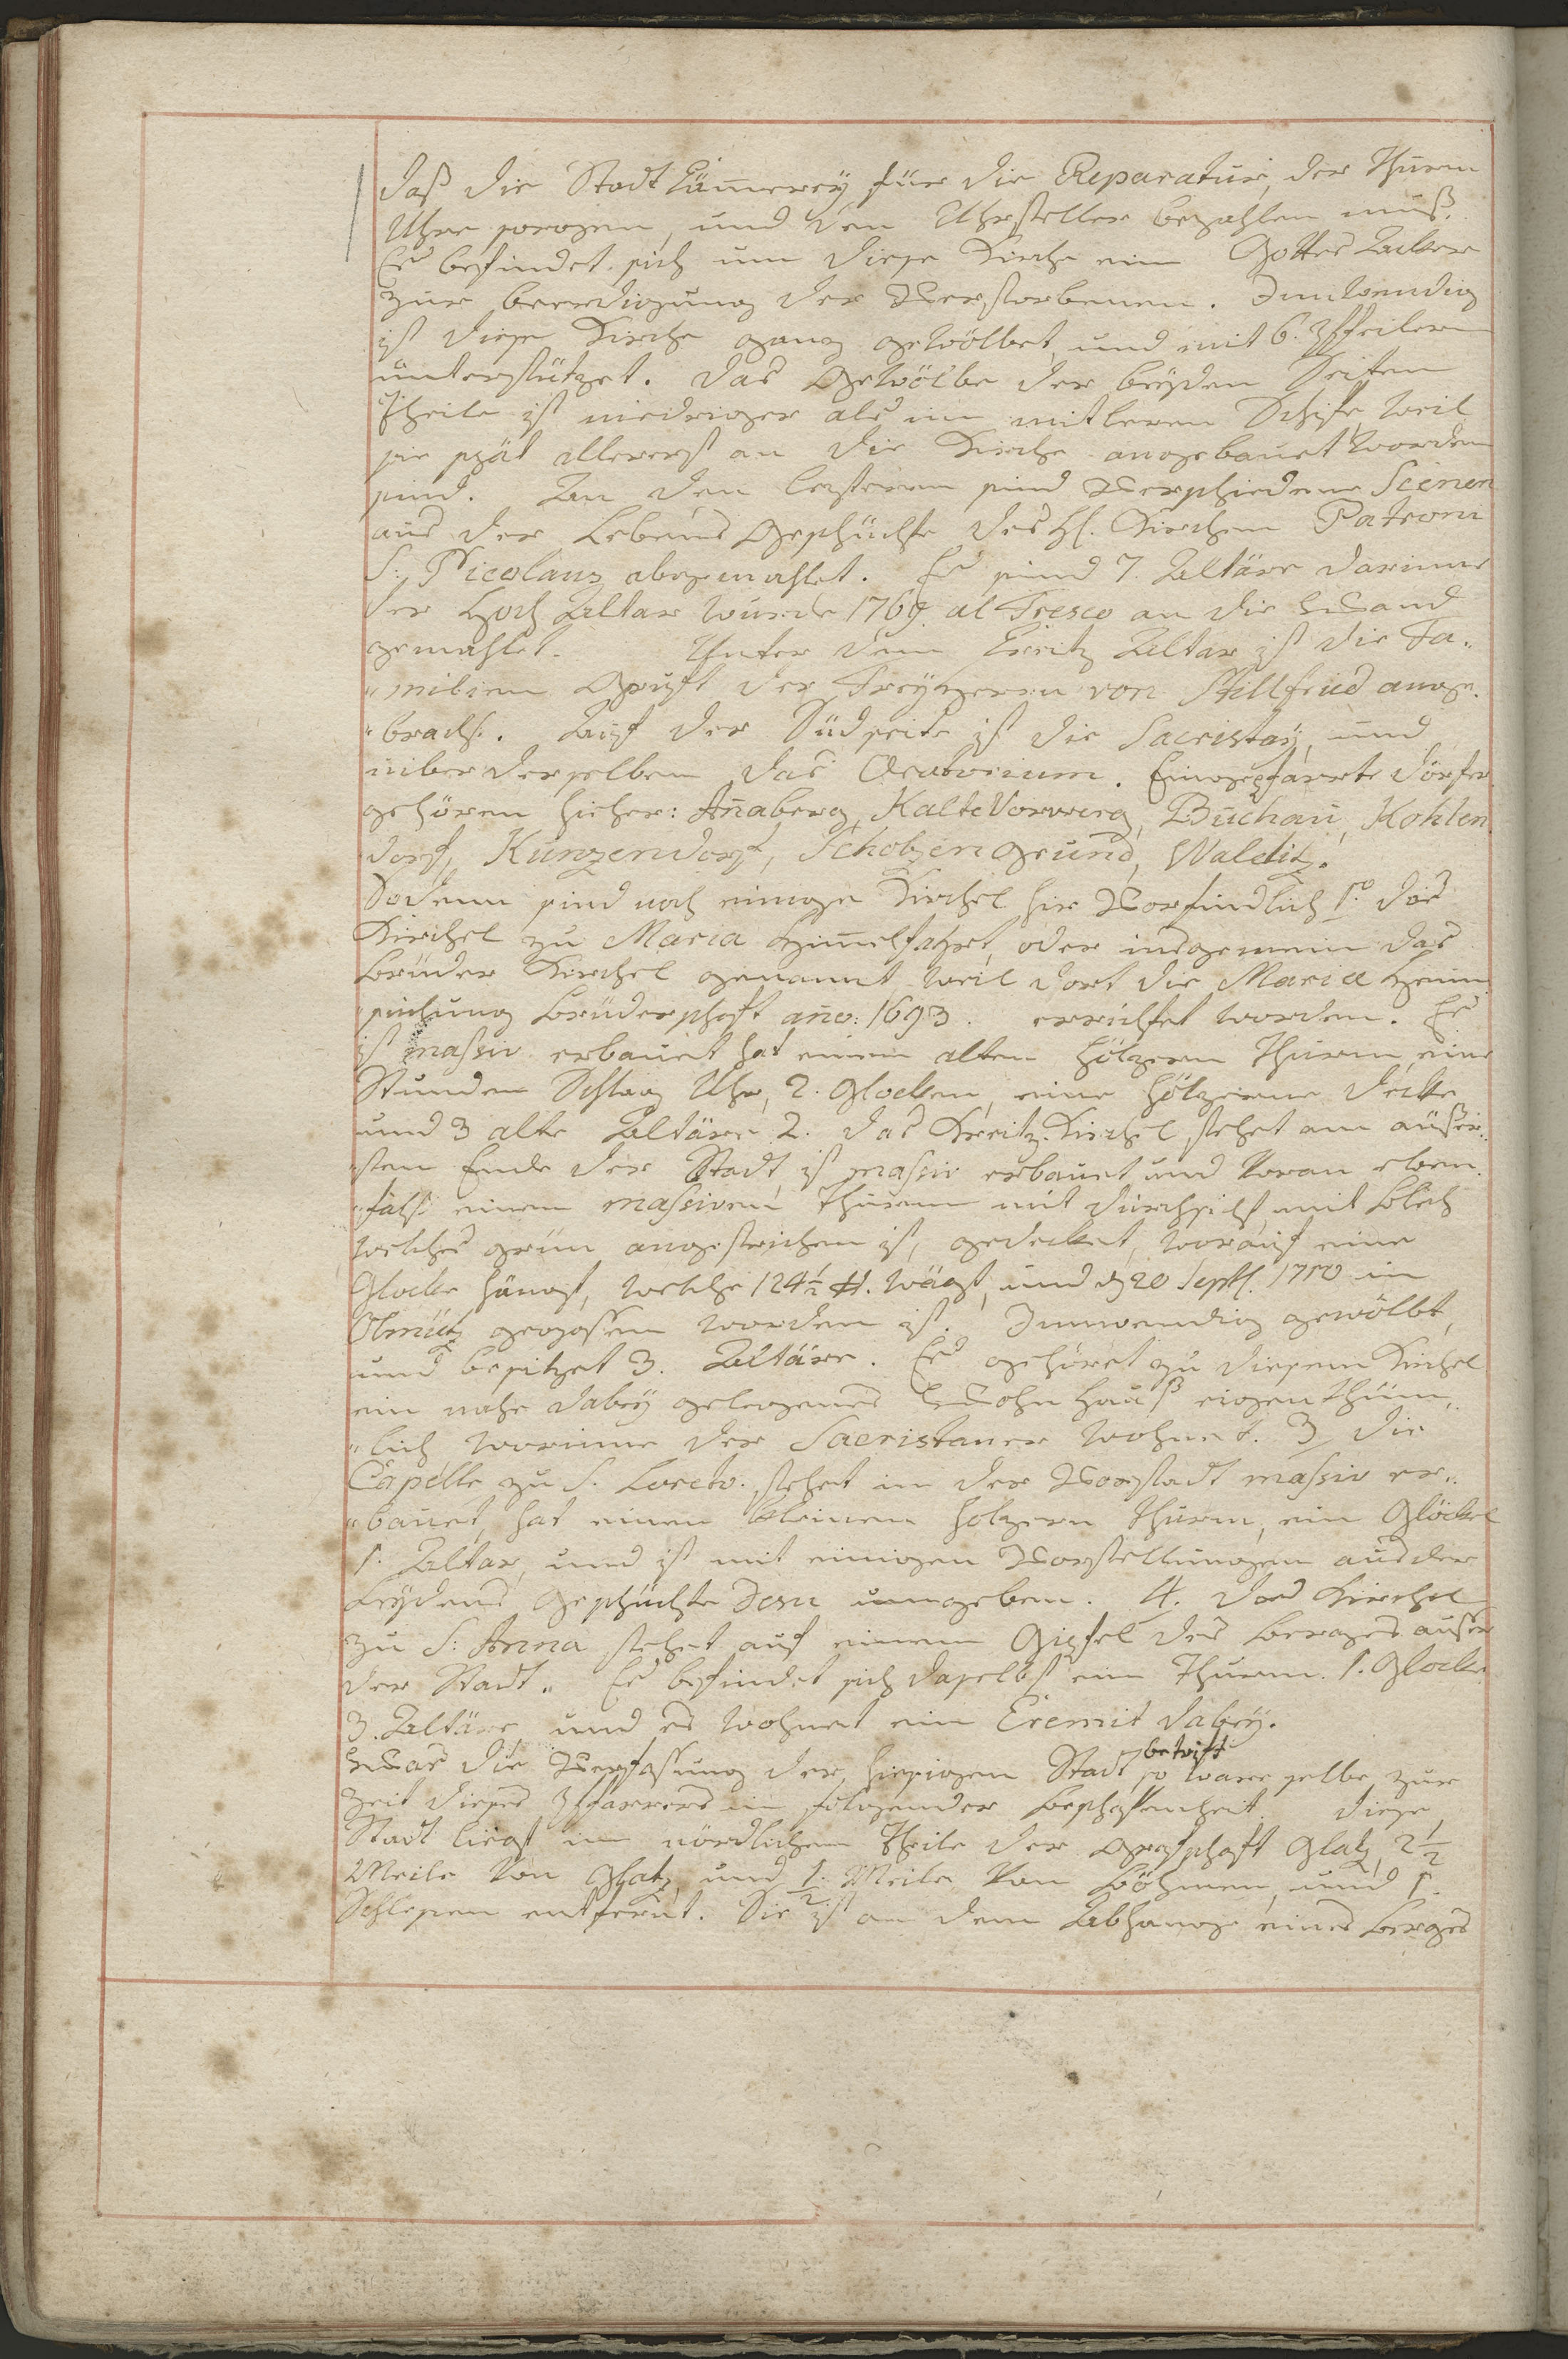 daß die Stadt Cämmerey für die Reparatur der Thurm
Uhre sorgen, und den Uhrsteller bezahlen muß.
Es befindet sich um diese Kirche ein Gottes Acker
zur beerdigung der Verstorbenen. Innwendig
ist diese Kirche ganz gewölbet und mit 6. Pfeilern
unterstützet. Das Gewölbe der beyden Seiten
Theile ist niedriger als im mitleren Schife, weil
sie spät allererst an die Kirche angebauet worden
sind. An den lezteren sind Verschiedene Scenen
aus der Lebens Geschüchte des Hl. Kirchen Patroni
S: Nicolaus abgemahlet. Es sind 7. Altäre darinne
der Hoch Altar wurde 1769. al Fresco an die Wand
gemahlet. Unter dem Creitz Altar ist die Fa-
"milien Gruft der Freyherrn von Stillfrid ange-
"bracht. Auf der Südseite ist die Sacristay, und
über derselben das Oratorium. Eingepfarrte Dörfer
gehören hieher: Añaberg, Kalte Vorwerg, Buchau, Kohlen
dorf, Kunzendorf, Scholzengrund, Walditz.
Sodenn sind noch einige Kirchel hir Vorfindlich 1º. das
Kirchel zu Maria Him̃elfahrt, oder insgemein das
Brüder Kirchel genannt weil dort die Mariæ Heim
suchung Brüderschaft año: 1693. errichtet worden. Es
ist massiv erbauet hat einen alten hölzern Thurm, eine
Stunden Schlag Uhr, 2. Glocken, eine hölzerne decke
und 3 alte Altäre 2. das Kreitz-Kirchel, stehet am äußer-
"sten Ende der Stadt, ist massiv erbauet und Voran eben-
"fals einen massiven Thurm mit durchsicht mit Blech
welches grün angestrichen ist, gedecket, worauf eine
Glocke hängt, welche 124½ ℔. wägt, und d 20 Septb. 1750 in
Olmütz gegossen worden ist. Innwendig gewölbt,
und besitzet 3. Altäre. Es gehöret zu diesem Kirchel
ein nahe dabey gelegenes Wohn Hauß eigenthüm-
"lich worinne der Sacristaner wohnet. 3, die
Capelle zu S. Loreto. stehet in der Vorstadt massiv er-
"bauet, hat einen kleinen holzern Thurm, ein Glöckel
1. Altar, und ist mit einigen Vorstellungen aus der
Leydens Geschüchte Jesu umgeben. 4. das Kirchel
zu S: Anna stehet auf einem Gipfel des Berges außer
der Stadt. Es befindet sich daselbst ein Thurm. 1. Glocke
3. Altäre und es wohnet ein Eremit dabey.
Was die Verfassung der hiesigen Stadt betrift so ware selbe zur
Zeit dieses Pfarrers in folgender Beschafenheit. Diese
Stadt liegt im nördlichen Theile der Grafschaft Glatz, 2½
Meile Von Glatz, und ½ Meile Von Böhmen, und 1.
Schlesien entfernt. Sie ist an dem Abhange eines Berges